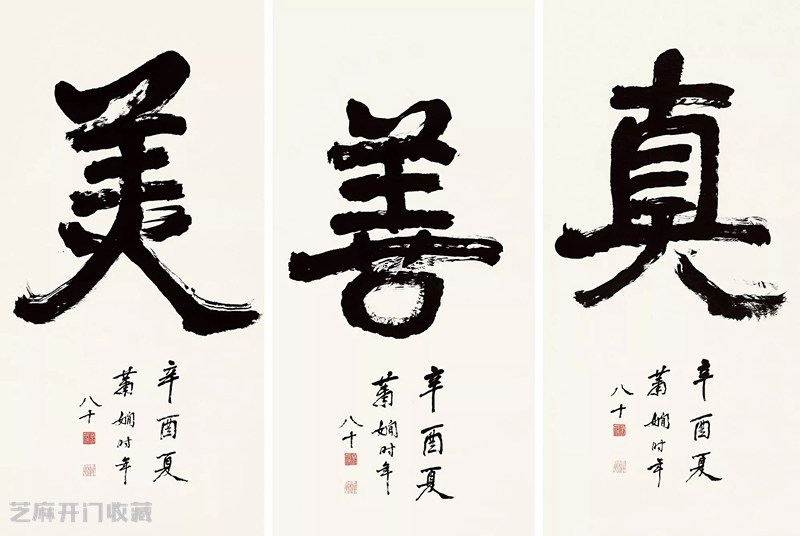 真
辛酉夏
蕭嫻时年
八十
善
辛酉夏
蕭嫻时年
八十
美
辛酉夏
蕭嫻时年
八十
芝麻开门收藏